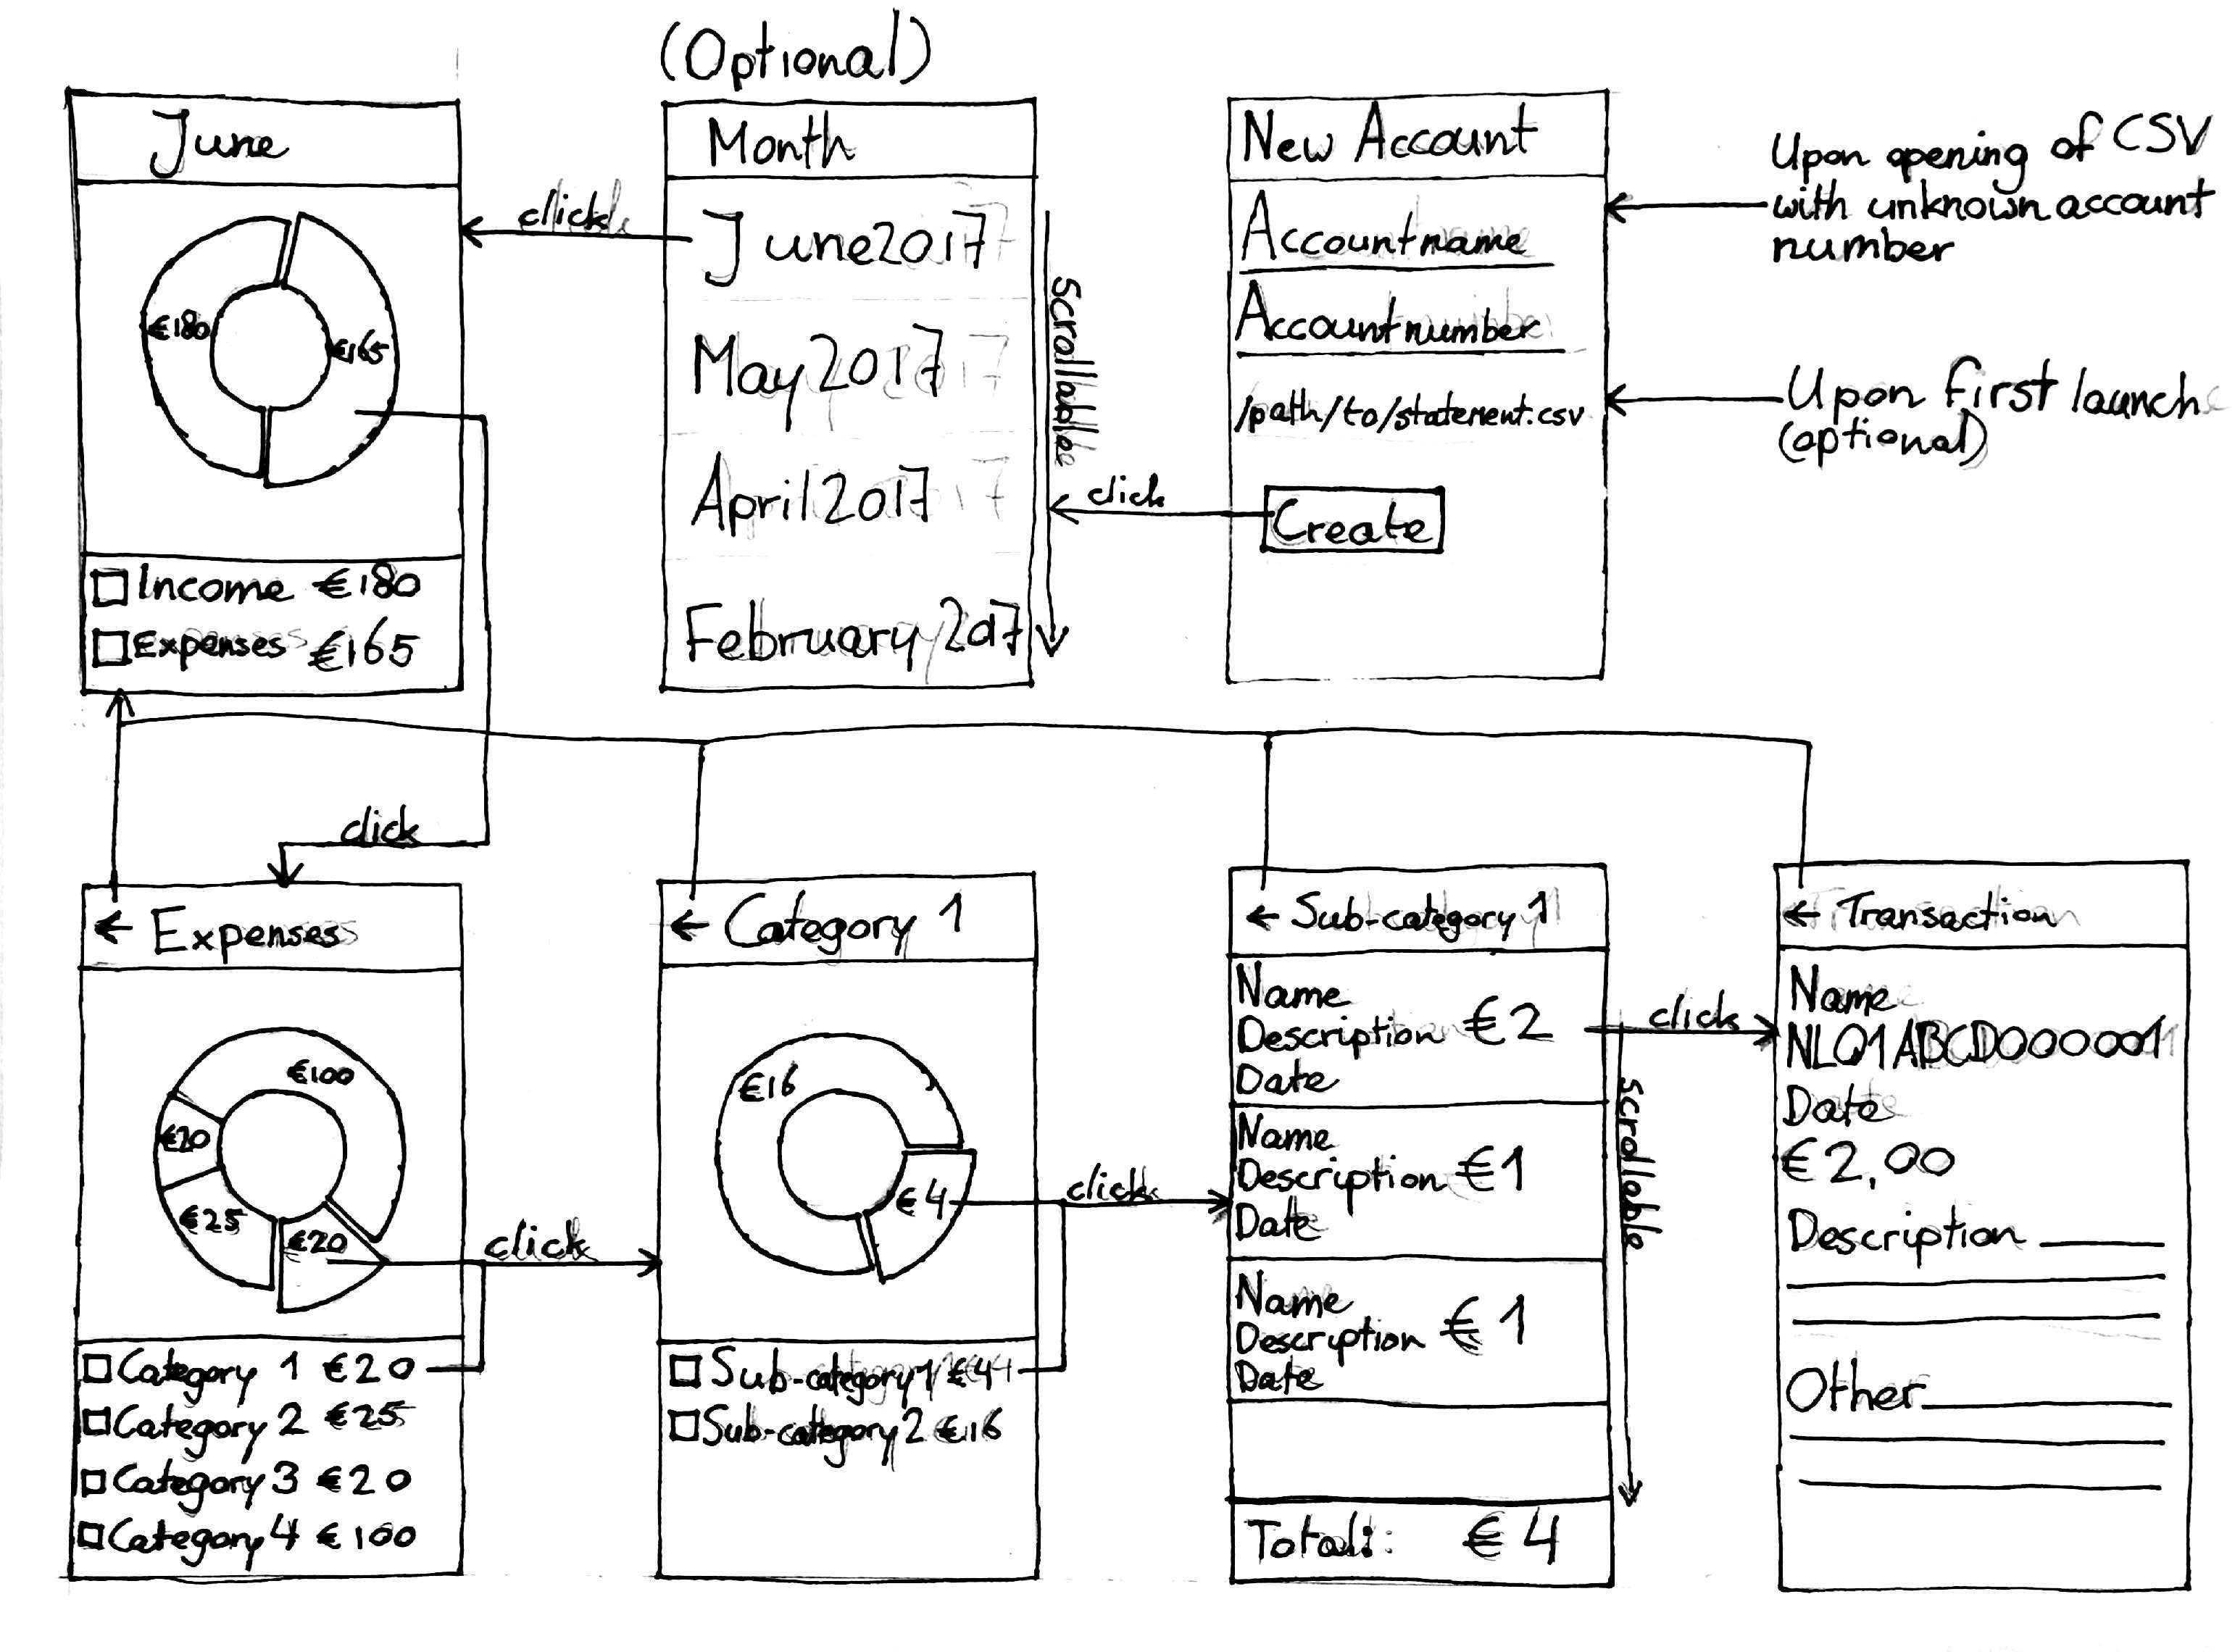 (Optional)
June
€180
€165
Income €180
Expenses €165
click
Month
June 2017
May 2017
April 2017
February 2017
Scrollable
click
New Account
Accountname
Accountnumber
/path/to/statement.csv
Create
Upon opening of CSV
with unknown account
number
Upon first launch
(optional)
click
← Expenses
€100
€20
€25
€20
Category 1 €20
Category 2 €25
Category 3 €20
Category 4 €100
click
← Category 1
€16
€4
Sub-category 1 €4
Sub-category 2 €16
click
← Sub-category 1
Name
Description €2
Date
Name
Description €1
Date
Name
Description €1
Date
Total: €4
Scrollable
click
← Transaction
Name
NL01ABCD000001
Date
€2,00
Description
Other